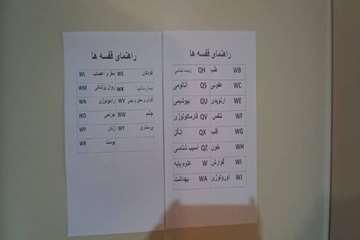 راهنمای قفسه ها
WB قلب QH زیست شناسی
WC عفونی QS آناتومی
WE ارتوپدی QU بیوشیمی
WF تنفس QV فارماکولوژی
WG قلب QX انگل
WH خون QZ آسیب شناسی
WI گوارش W علوم پایه
WJ اورولوژی WA بهداشت
راهنمای قفسه ها
WS کودکان WL مغز و اعصاب
WX بیمارستانها WM روان پزشکی
WV گوش و حلق و بینی WN رادیولوژی
WW چشم WO جراحی
WY پرستاری WP زنان
WR پوست